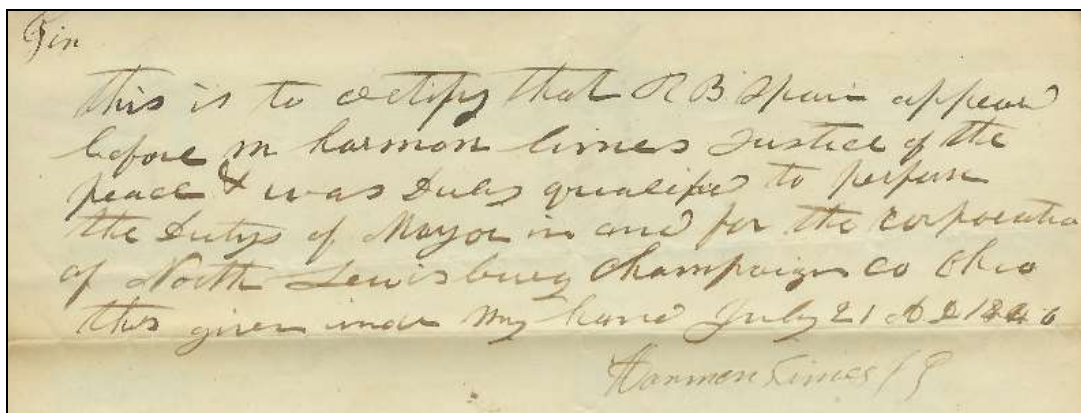 Sir
this is to certify that R B Spain appeard
before m harmon limes Justice of the
peace & was Duly qualified to perform
the Dutys of Mayor in and for the corporatio
of North Lewisburg Champaign co Ohio
this given under my hand July 21 AD 1846
Harmon Limes J P